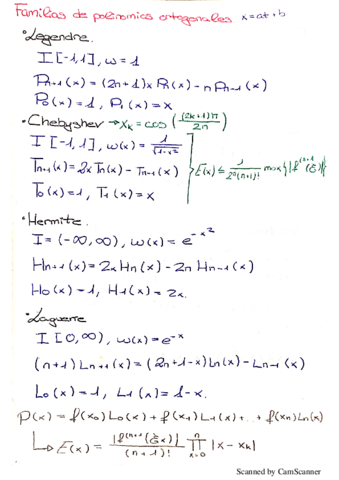 Familias de polinomios ortogonales x=at+b
• Legendre.
I[-1,1], ω=1
Pn+1(x) = (2n+1)x Pn(x) - n Pn-1(x)
P0(x)=1, P1(x)=x
• Chebyshev → xk = cos((2k+1)π/2n)
I[-1,1], ω(x)= 1/√1-x²
Tn+1(x)=2x Tn(x) - Tn-1(x)
E(x) ≤ 1/2ⁿ(n+1)! máx{|fⁿ⁺¹(ξ)|}
T0(x)=1, T1(x)=x
• Hermite.
I=(-∞,∞), ω(x)=e^-x²
Hn+1(x)=2x Hn(x) - 2n Hn-1(x)
H0(x)=1, H1(x)=2x.
• Laguerre
I[0,∞), ω(x)=e^-x
(n+1) Ln+1(x)=(2n+1-x)Ln(x) - Ln-1(x)
L0(x)=1, L1(x)=1-x.
P(x) = f(x0)L0(x) + f(x1)L1(x)+...+f(xn)Ln(x)
↳ E(x) = |fⁿ⁺¹(ξx)|/(n+1)! ∏ⁿx=0 |x-xk|
Scanned by CamScanner